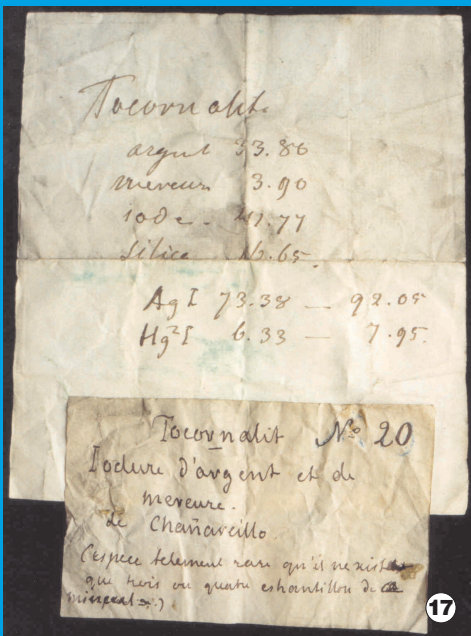 Tocornalit.
argent 33.80
mercure 3.90
iode - 41.77
silice 16.65.
AgI 73.38 — 92.05
Hg²I 6.33 — 7.95.
Tocornalit No. 20
Iodure d'argent et de
mercure.
de Chañarcillo.
(espece telement rare qu'il n'existe
que trois ou quatre echantillon de ce
mineral.)
17